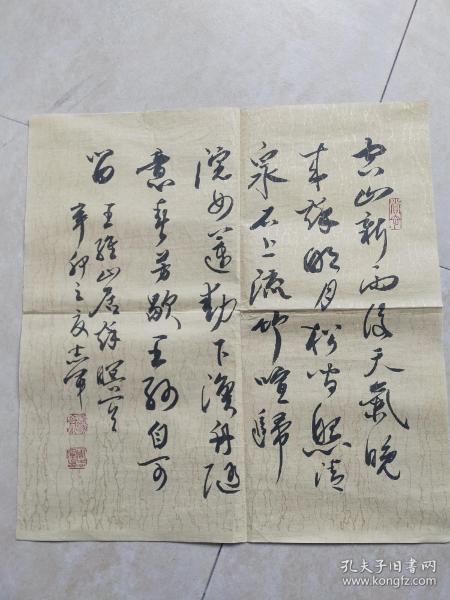 空山新雨後天氣晚
来秋明月松间照清
泉石上流竹喧歸
浣女蓮動下漁舟随
意春芳歇王孙自可
留 王維山居秋暝
辛卯之夏志军
孔夫子旧书网
www.kongfz.com